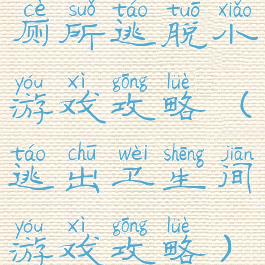 cè suǒ táo tuō xiǎo
厕所逃脱小
yóu xì gōng lüè
游戏攻略（
táo chū wèi shēng jiān
逃出卫生间
yóu xì gōng lüè
游戏攻略）